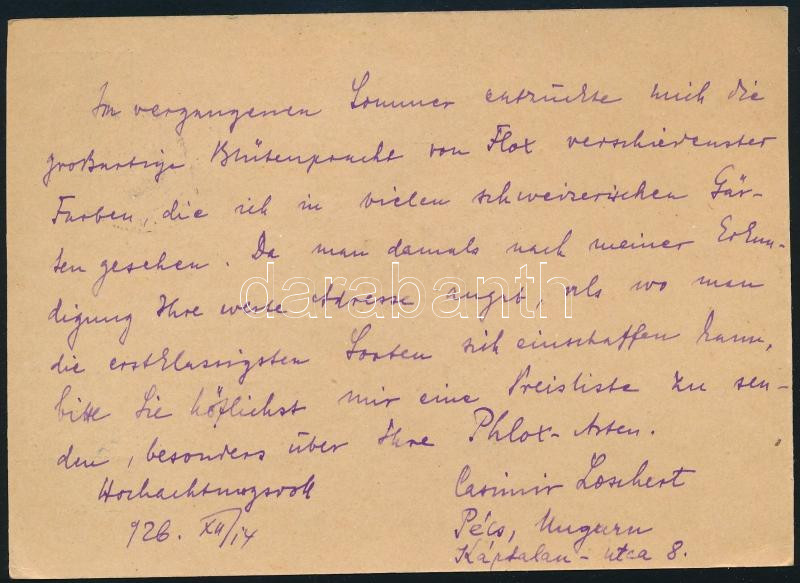 Im vergangenen Sommer entzückte mich die
großartige Blütenpracht von Flox verschiedenster
Farben, die ich in vielen schweizerischen Gär-
ten gesehen. Da man damals nach meiner Erkun-
digung Ihre werte Adresse angab, als wo man
die erstklassigsten Sorten sich einschaffen kann,
bitte Sie höflichst mir eine Preisliste zu sen-
den, besonders über Ihre Phlox-Arten.
Hochachtungsvoll
Casimir Loschert
926. XII/14
Pécs, Ungarn
Káptalan-utca 8.
darabanth